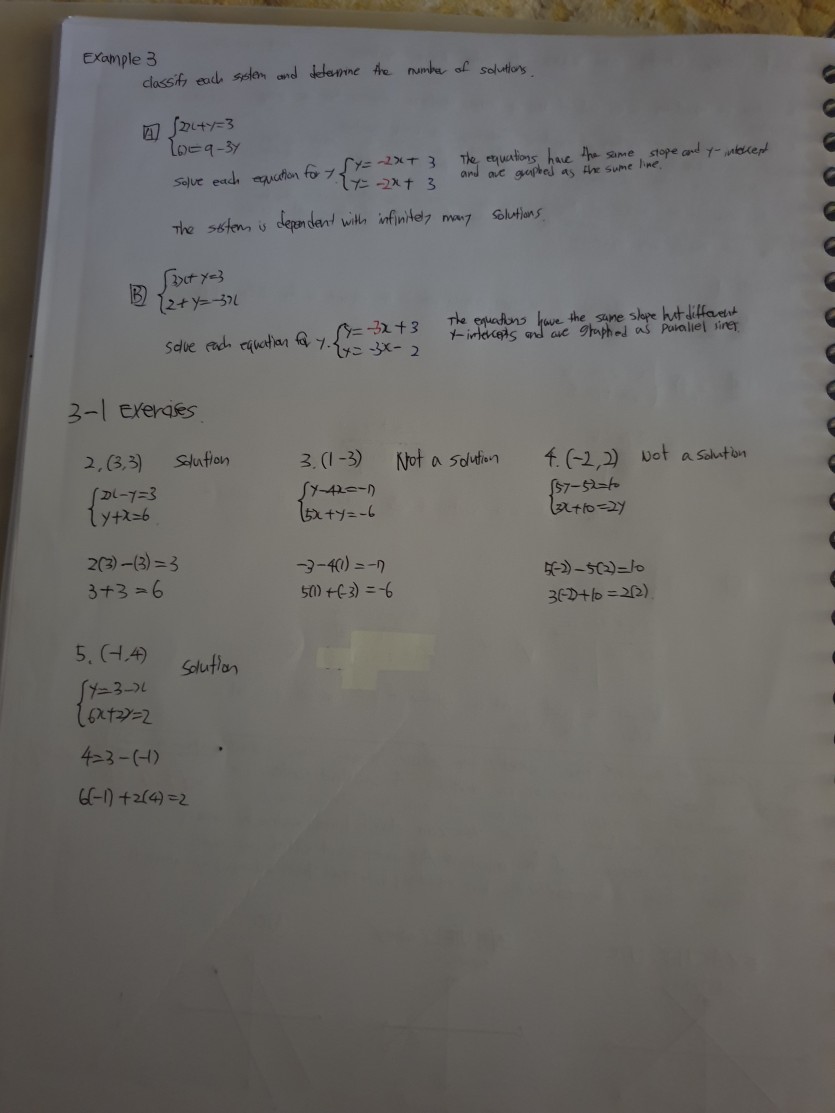 Example 3
classify each system and determine the number of solutions.
A {2x+y=3
6x=9-3y
solve each equation for y {y=-2x+3 The equations have the same slope and y-intercept
y=-2x+3 and are graphed as the same line.
The system is dependent with infinitely many solutions
B {3x+y=3
2+y=-3x
solve each equation for y. {y=-3x+3 The equations have the same slope but different
y=-3x-2 y-intercepts and are graphed as parallel lines
3-1 Exercises
2, (3,3) solution 3. (1-3) Not a solution 4. (-2,2) Not a solution
{2x-y=3 {y-4x=-7 {5y-5x=10
y+x=6 5x+y=-6 3x+10=2y
2(3)-(3)=3 -3-4(1)=-7 5(-2)-5(2)=10
3+3=6 5(1)+(-3)=-6 3(-2)+10=2(2)
5, (-1,4) solution
{y=3-x
6x+2y=2
4=3-(-1)
6(-1)+2(4)=2